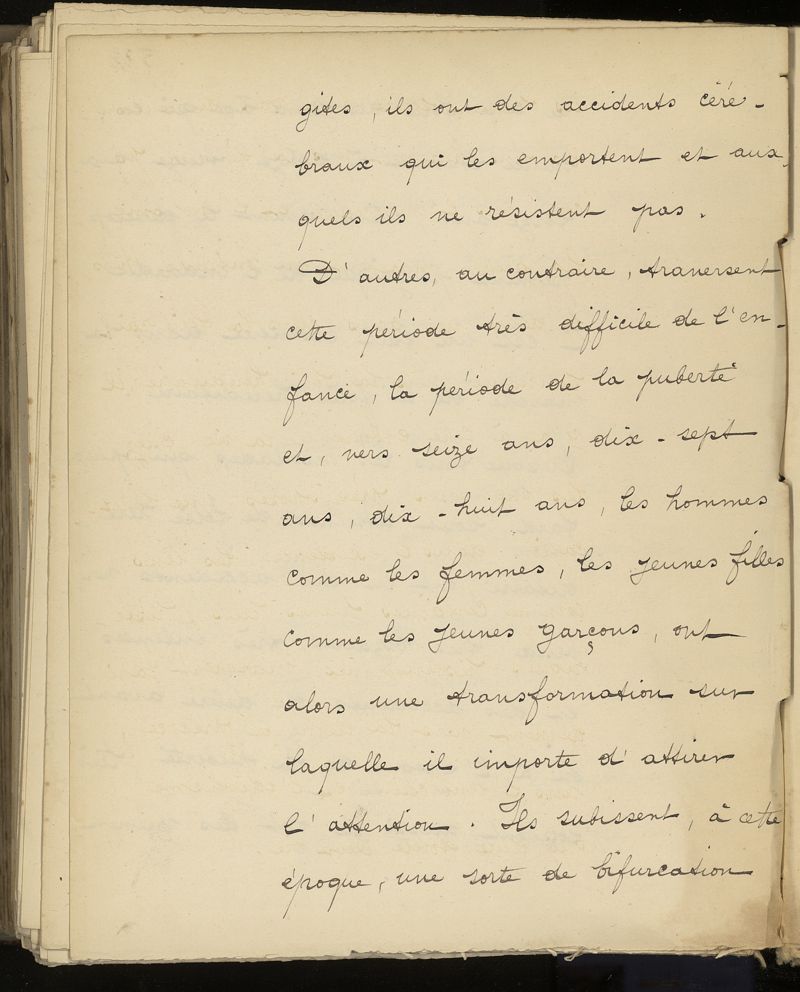 gites, ils ont des accidents céré-
braux qui les emportent et aux
quels ils ne résistent pas.
D'autres, au contraire, traversent
cette période très difficile de l'en-
fance, la période de la puberté
et, vers seize ans, dix-sept
ans, dix-huit ans, les hommes
comme les femmes, les jeunes filles
comme les jeunes garçons, ont
alors une transformation sur
laquelle il importe d'attirer
l'attention. Ils subissent, à cette
époque, une sorte de bifurcation